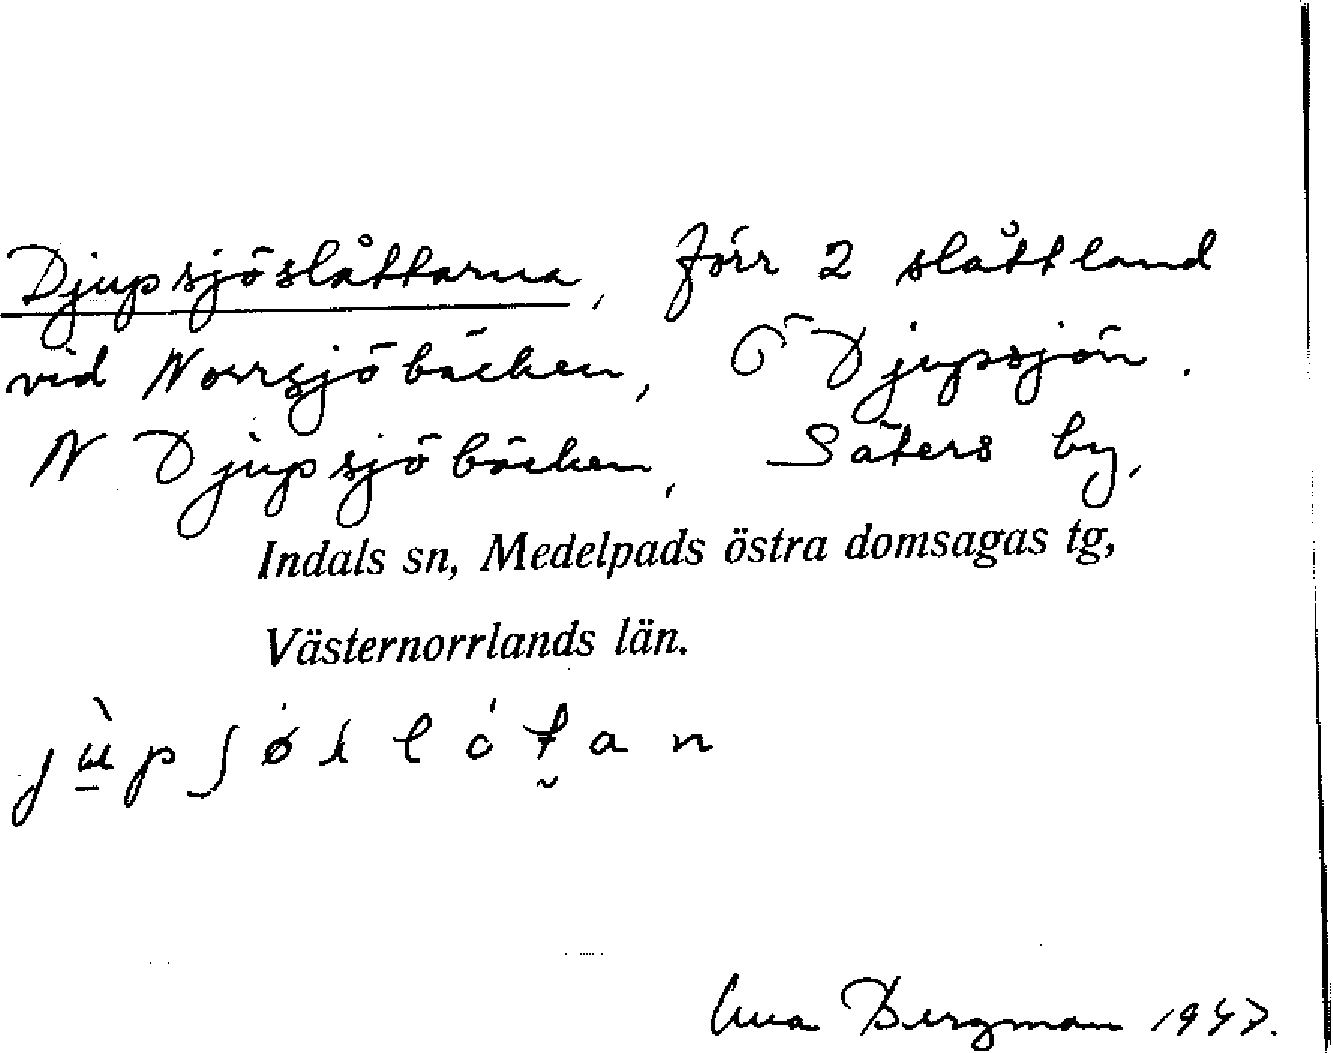 Djupsjöslåttarna, förr 2 slåttland
vid Norrsjöbäcken, Ö Djupsjön.
N Djupsjöbäcken, Säters by,
Indals sn, Medelpads östra domsagas tg,
Västernorrlands län.
Bergman 1947.